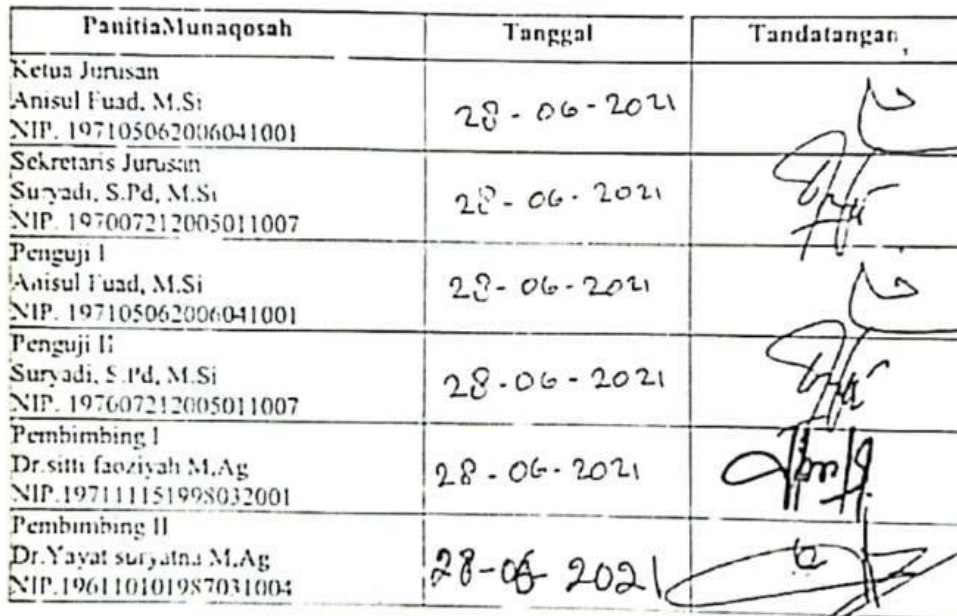 PanitiaMunaqosah Tanggal Tandatangan
Ketua Jurusan
Anisul Fuad, M.Si
NIP. 197105062006041001
28 - 06 - 2021
Sekretaris Jurusan
Suryadi, S.Pd, M.Si
NIP. 197007212005011007
28 - 06 - 2021
Penguji I
Anisul Fuad, M.Si
NIP. 197105062006041001
28 - 06 - 2021
Penguji II
Suryadi, S.Pd, M.Si
NIP. 197607212005011007
28 - 06 - 2021
Pembimbing I
Dr.sitti faoziyah M.Ag
NIP.197111151998032001
28 - 06 - 2021
Pembimbing II
Dr.Yayat suryatna M.Ag
NIP.196110101987031004
28-06 2021